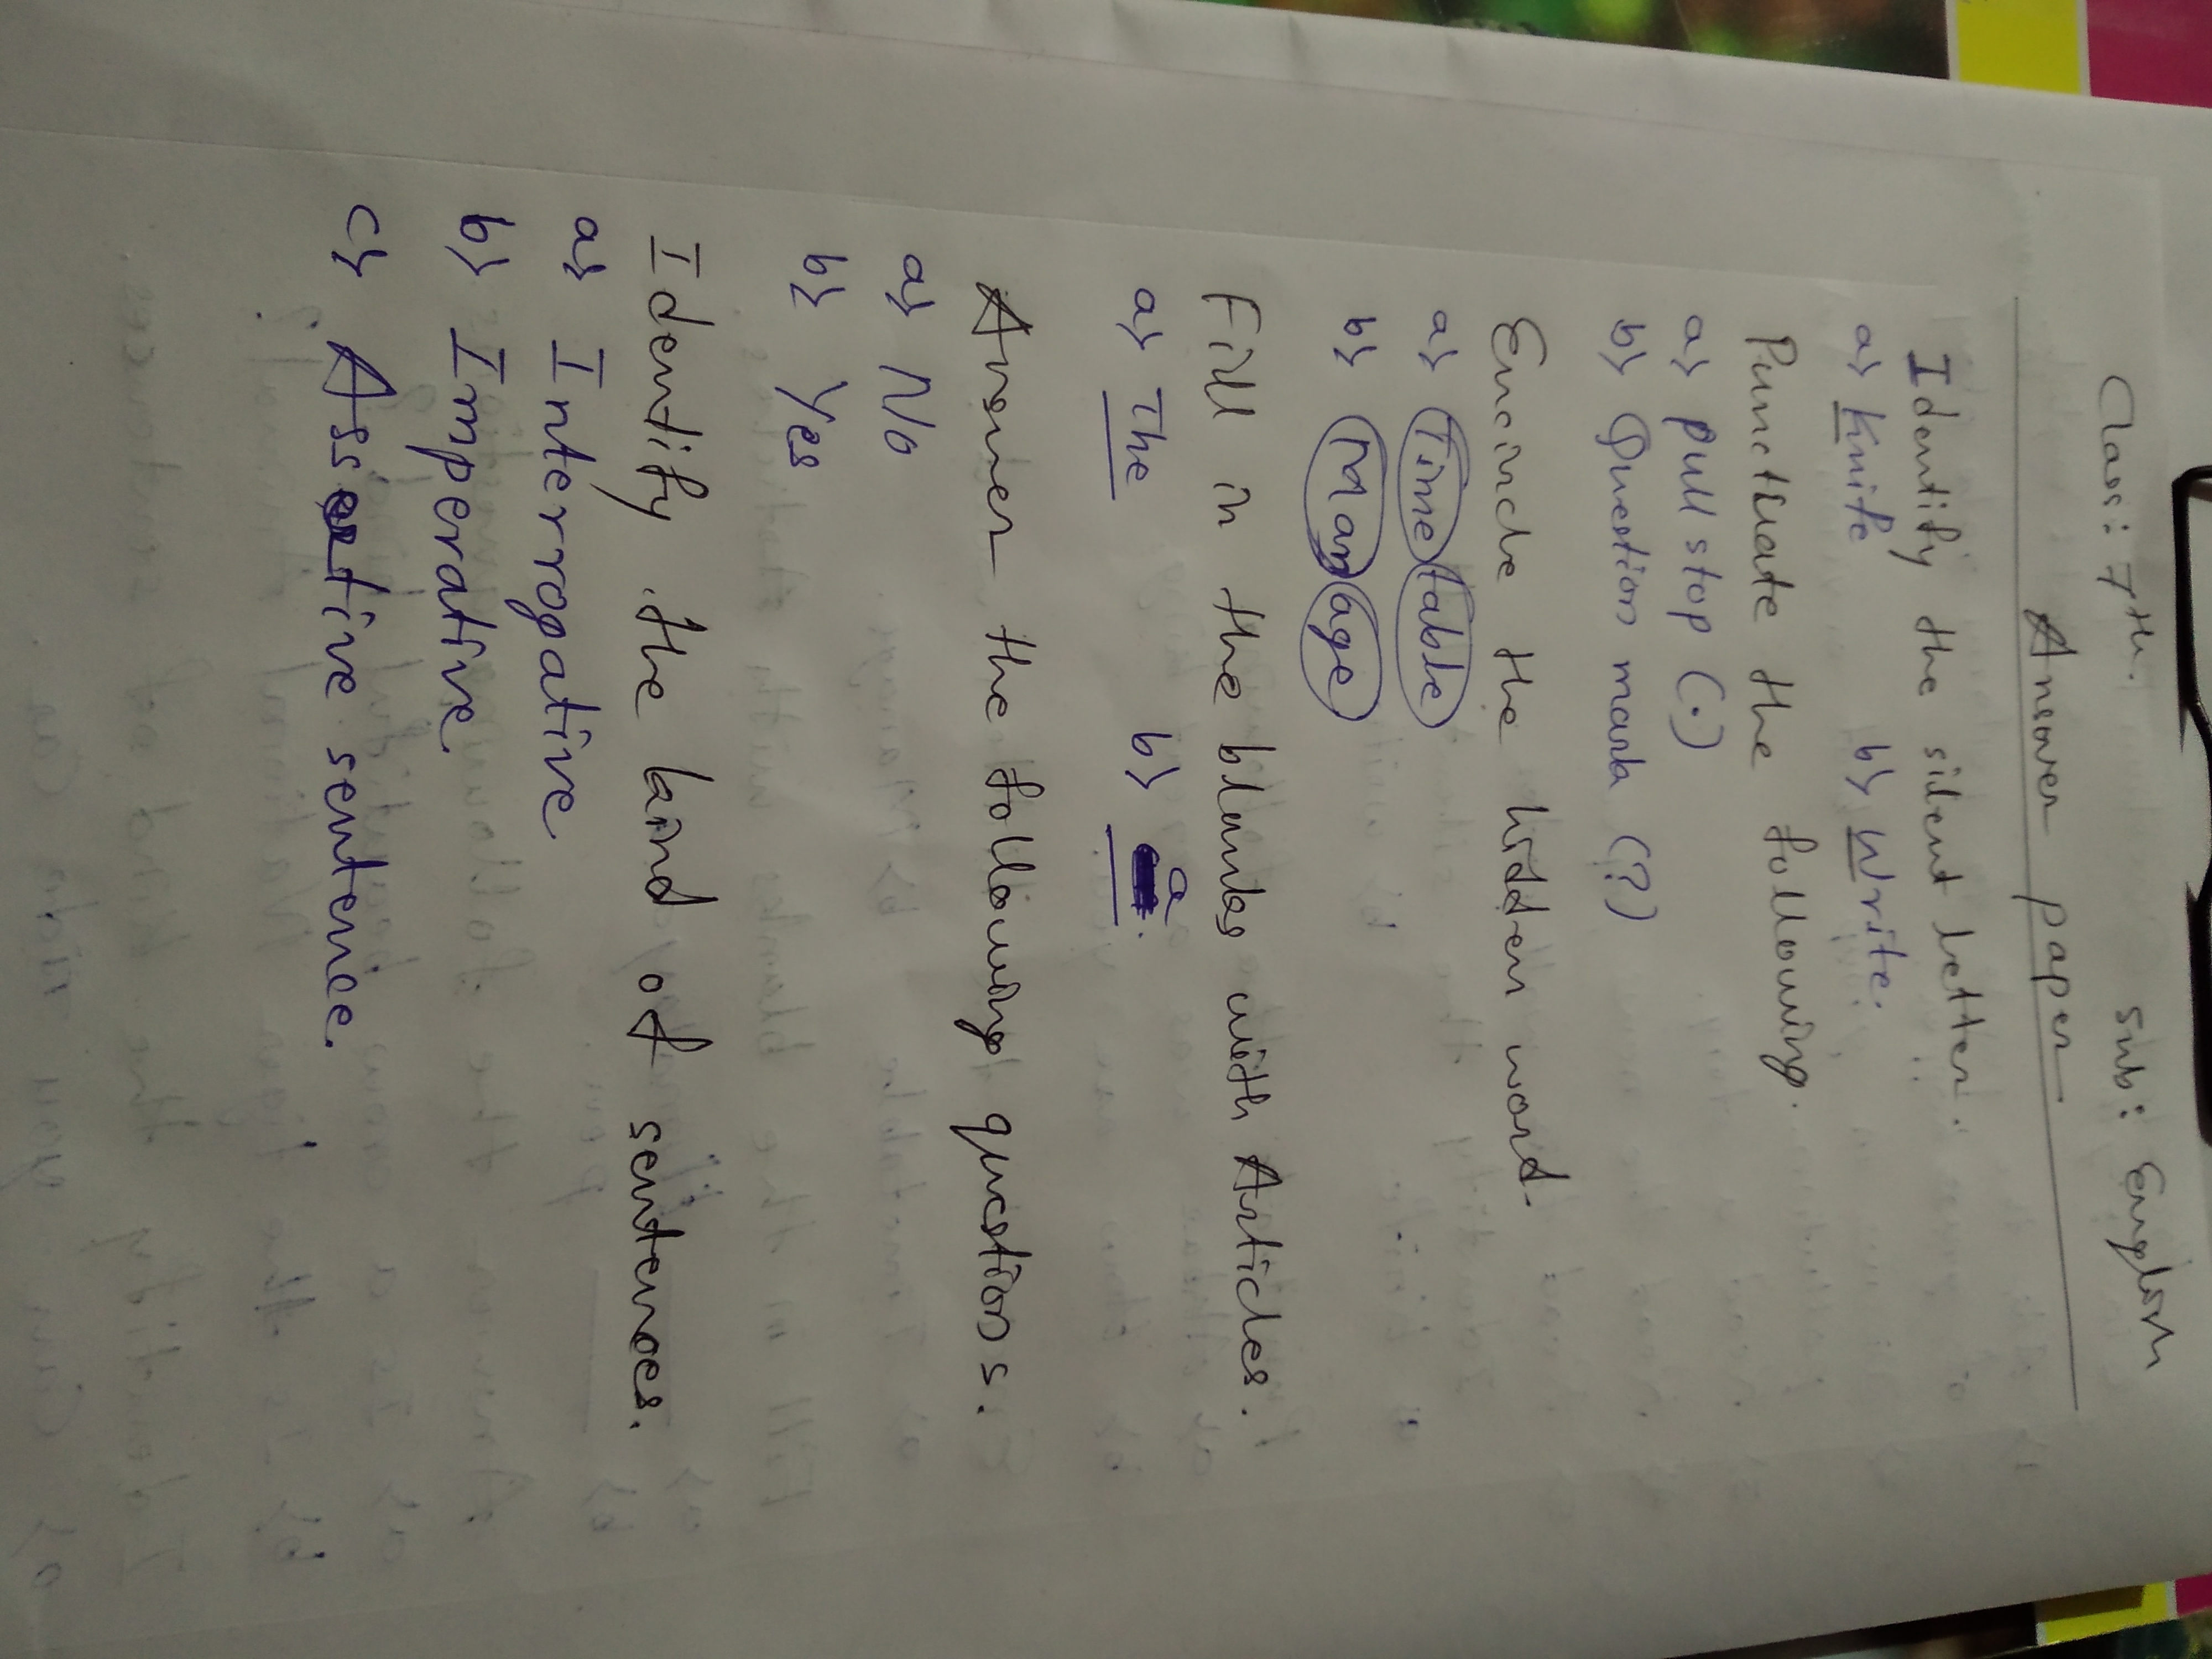 Class: 7th. Sub: English
Answer paper
Identify the silent letter.
a) Knife b) Write.
Punctuate the following.
a) Full stop (.)
b) Question mark (?)
Encircle the hidden word.
a) Time table
b) Man age
Fill in the blanks with Articles.
a) The b) a.
Answer the following questions.
a) No
b) Yes
Identify the kind of sentences.
a) Interrogative
b) Imperative
c) Assertive sentence.